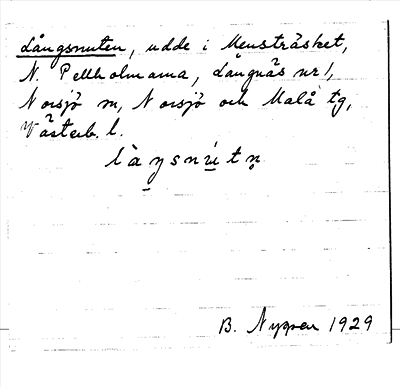 Långsnuten, udde i Mensträsket,
N. Pellholmarna, Långnäs nr 1,
Norsjö sn, Norsjö och Malå tg,
Västerb. l.
B. Nygren 1929